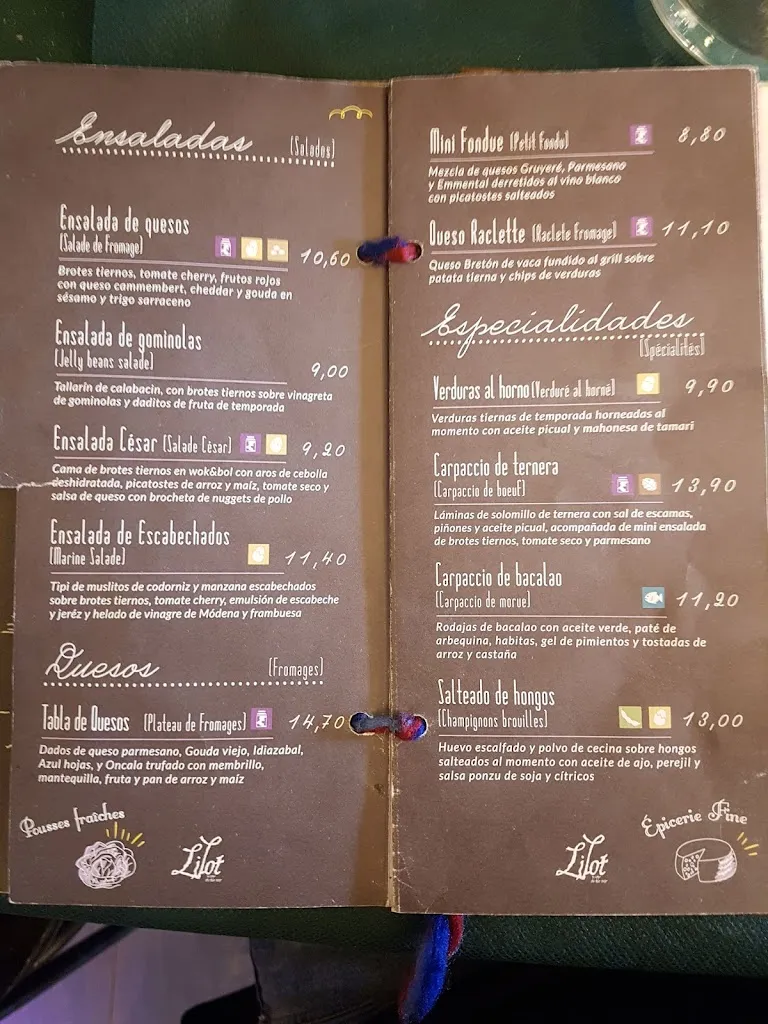 Ensaladas
(Salades)
Ensalada de quesos
(Salade de Fromage)
10,60
Brotes tiernos, tomate cherry, frutos rojos
con queso cammembert, cheddar y gouda en
sésamo y trigo sarraceno
Ensalada de gominolas
(Jelly beans salade)
9,00
Tallarín de calabacín, con brotes tiernos sobre vinagreta
de gominolas y daditos de fruta de temporada
Ensalada César (Salade César) 9,20
Cama de brotes tiernos en wok&bol con aros de cebolla
deshidratada, picatostes de arroz y maíz, tomate seco y
salsa de queso con brocheta de nuggets de pollo
Ensalada de Escabechados
(Marine Salade) 11,40
Tipi de muslitos de codorniz y manzana escabechados
sobre brotes tiernos, tomate cherry, emulsión de escabeche
y jeréz y helado de vinagre de Módena y frambuesa
Quesos
(Fromages)
Tabla de Quesos (Plateau de Fromages) 14,70
Dados de queso parmesano, Gouda viejo, Idiazabal,
Azul hojas, y Oncala trufado con membrillo,
mantequilla, fruta y pan de arroz y maíz
Pousses fraîches
Lilot
Mini Fondue (Petit Fondu) 8,80
Mezcla de quesos Gruyeré, Parmesano
y Emmental derretidos al vino blanco
con picatostes salteados
Queso Raclette (Raclete Fromage) 11,10
Queso Bretón de vaca fundido al grill sobre
patata tierna y chips de verduras
Especialidades
(Spécialités)
Verduras al horno (Verduré al horné) 9,90
Verduras tiernas de temporada horneadas al
momento con aceite picual y mahonesa de tamari
Carpaccio de ternera
(Carpaccio de boeuf) 13,90
Láminas de solomillo de ternera con sal de escamas,
piñones y aceite picual, acompañada de mini ensalada
de brotes tiernos, tomate seco y parmesano
Carpaccio de bacalao
(Carpaccio de morue) 11,20
Rodajas de bacalao con aceite verde, paté de
arbequina, habitas, gel de pimientos y tostadas de
arroz y castaña
Salteado de hongos
(Champignons brouilles) 13,00
Huevo escalfado y polvo de cecina sobre hongos
salteados al momento con aceite de ajo, perejil y
salsa ponzu de soja y cítricos
Lilot
Epicerie Fine